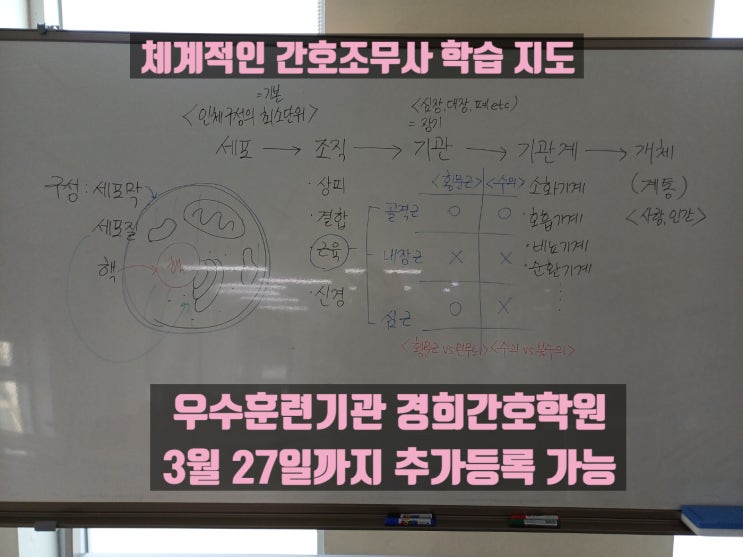 체계적인 간호조무사 학습 지도
=기본
<인체구성의 최소단위>
<심장, 대장, 폐 etc>
= 장기
세포 → 조직 → 기관 → 기관계 → 개체
구성 : 세포막
세포질
핵
핵
· 상피
· 결합
· 근육
· 신경
<횡문근> <수의>
골격근 O O
내장근 X X
심근 O X
<횡문근 vs 민무늬> <수의 vs 불수의>
소화기계
· 호흡기계
· 비뇨기계
· 순환기계
⋮
(계통)
<사람, 인간>
우수훈련기관 경희간호학원
3월 27일까지 추가등록 가능